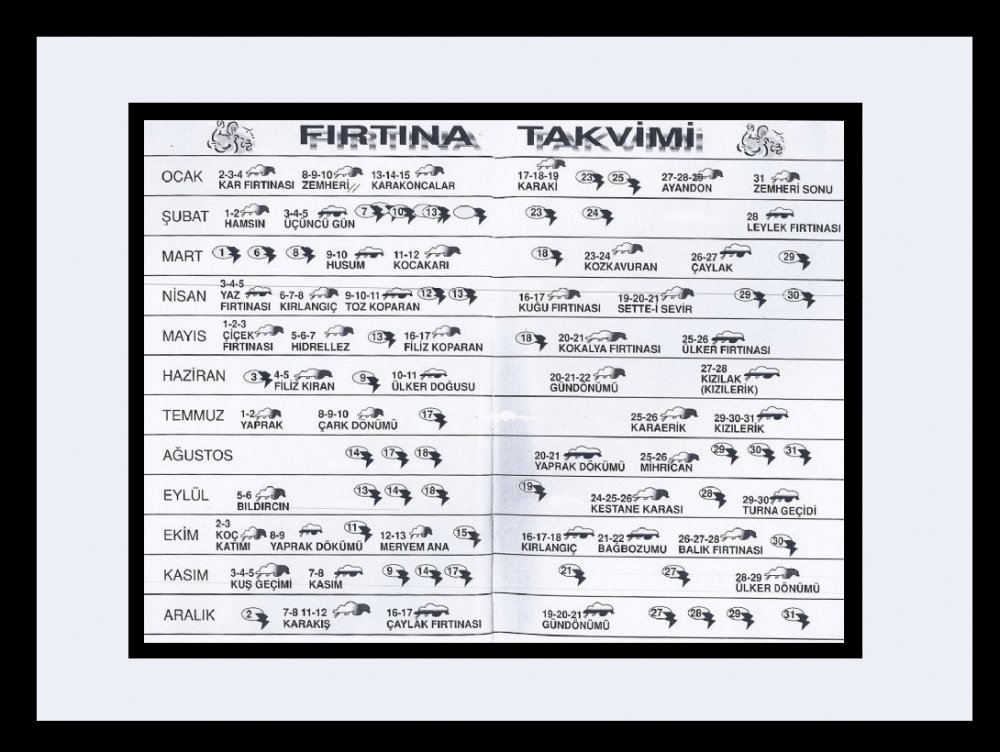 FIRTINA TAKVİMİ
OCAK 2-3-4 8-9-10 13-14-15 17-18-19 23 25 27-28-29 31
KAR FIRTINASI ZEMHERİ KARAKONCALAR KARAKİ AYANDON ZEMHERİ SONU
ŞUBAT 1-2 3-4-5 7 10 13 23 24 28
HAMSIN ÜÇÜNCÜ GÜN LEYLEK FIRTINASI
MART 1 6 8 9-10 11-12 18 23-24 26-27 29
HUSUM KOCAKARI KOZKAVURAN ÇAYLAK
3-4-5
NİSAN YAZ 6-7-8 9-10-11 12 13 16-17 19-20-21 29 30
FIRTINASI KIRLANGIÇ TOZ KOPARAN KUĞU FIRTINASI SETTE-İ SEVİR
1-2-3
MAYIS ÇİÇEK 5-6-7 13 16-17 18 20-21 25-26
FIRTINASI HIDRELLEZ FİLİZ KOPARAN KOKALYA FIRTINASI ÜLKER FIRTINASI
HAZİRAN 3 4-5 9 10-11 20-21-22 27-28
FİLİZ KIRAN ÜLKER DOĞUSU GÜNDÖNÜMÜ KIZILAK
(KIZILERİK)
TEMMUZ 1-2 8-9-10 17 25-26 29-30-31
YAPRAK ÇARK DÖNÜMÜ KARAERİK KIZILERİK
AĞUSTOS 14 17 18 20-21 25-26 29 30 31
YAPRAK DÖKÜMÜ MİHRİCAN
EYLÜL 5-6 13 14 18 19 24-25-26 28 29-30
BILDIRCIN KESTANE KARASI TURNA GEÇİDİ
2-3
EKİM KOÇ 8-9 11 12-13 15 16-17-18 21-22 26-27-28 30
KATIMI YAPRAK DÖKÜMÜ MERYEM ANA KIRLANGIÇ BAĞBOZUMU BALIK FIRTINASI
KASIM 3-4-5 7-8 9 14 17 21 27 28-29
KUŞ GEÇİMİ KASIM ÜLKER DÖNÜMÜ
ARALIK 2 7-8 11-12 16-17 19-20-21 27 28 29 31
KARAKIŞ ÇAYLAK FIRTINASI GÜNDÖNÜMÜ